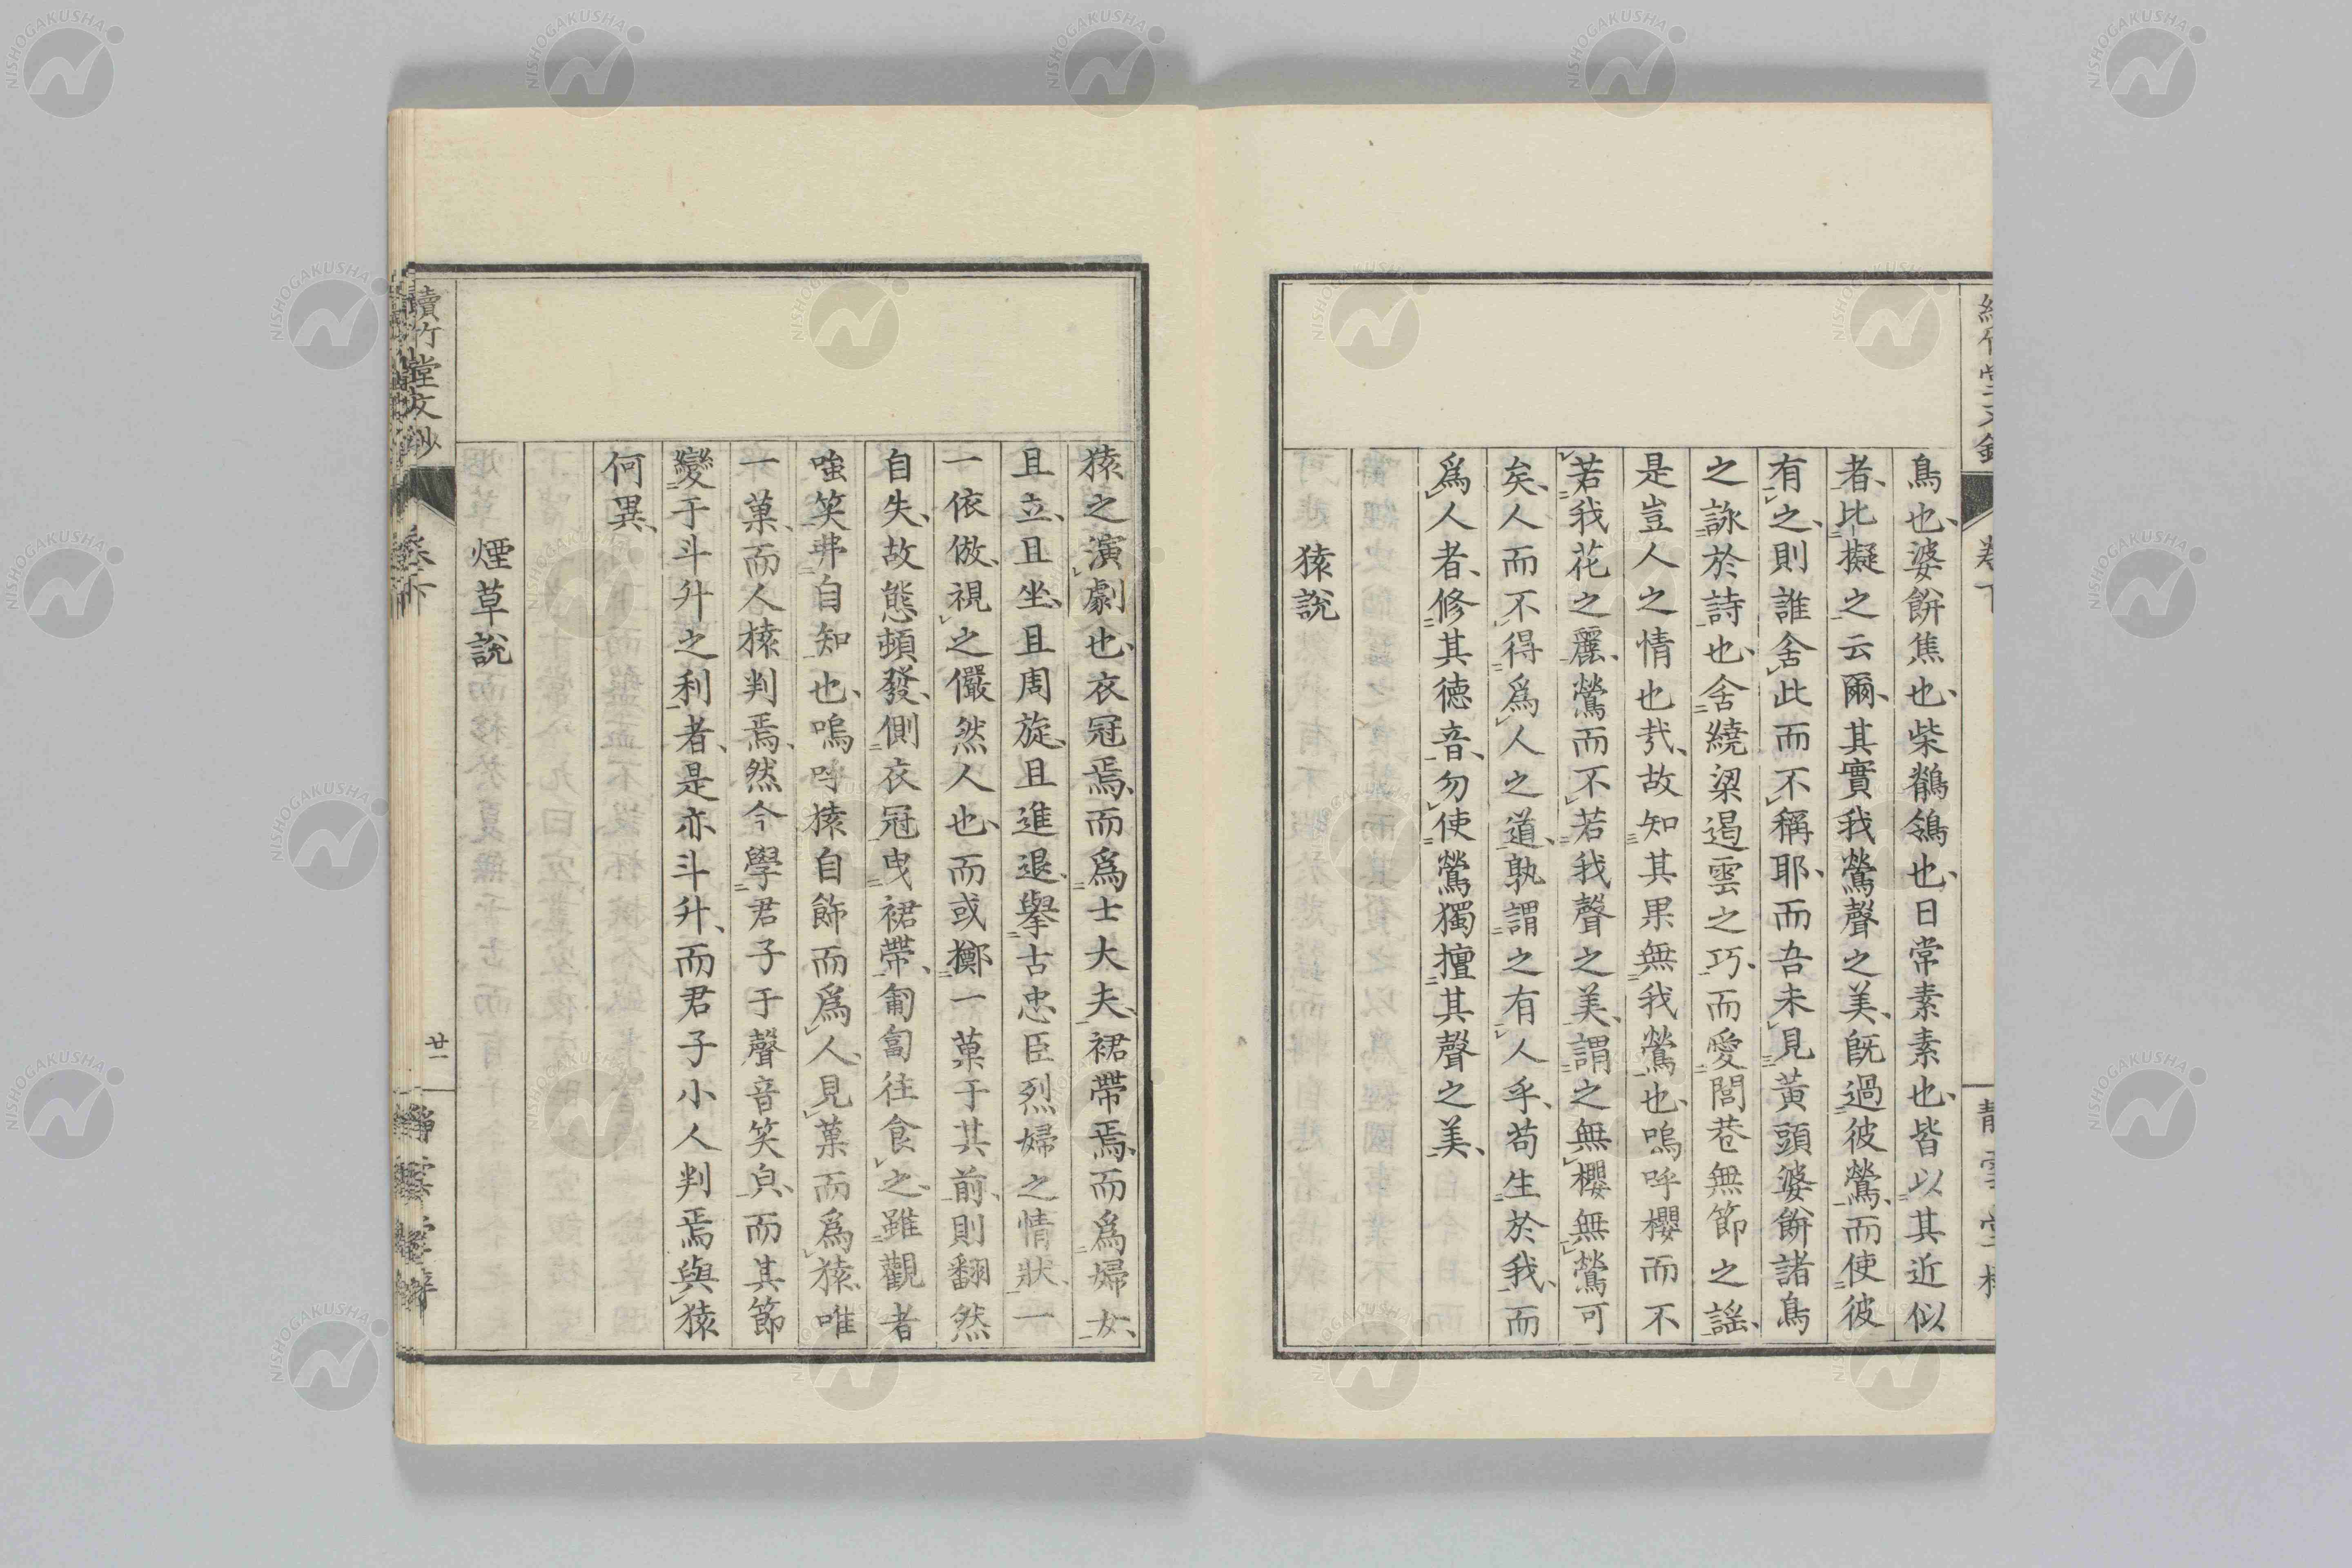 鳥也、婆餅焦也、柴鶺鴒也、日常素素也、皆以其近似
者、比擬之云爾、其實我鶯聲之美、旣過彼鶯、而使彼
有之、則誰舍此而不稱耶、而吾未見黃頭婆餅諸鳥
之詠於詩也、舍繞梁遏雲之巧、而愛閭巷無節之謠、
是豈人之情也㢤、故知其果無我鶯也、嗚呼櫻而不
若我花之麗、鶯而不若我聲之美、謂之無櫻無鶯可
矣、人而不得爲人之道、孰謂之有人乎、苟生於我、而
爲人者、修其德音、勿使鶯獨擅其聲之美、
猿說
猿之演劇也、衣冠焉、而爲士大夫、裙帶焉、而爲婦女、
且立、且坐、且周旋、且進退、擧古忠臣烈婦之情狀、一
一依倣、視之儼然人也、而或擲一菓于其前、則翻然
自失、故態頓發、側衣冠曳裙帶、匍匐往食之、雖觀者
嗤笑弗自知也、嗚呼猿自飾而爲人、見菓而爲猿、唯
一菓、而人猿判焉、然今學君子于聲音笑皃、而其節
變于斗升之利者、是亦斗升、而君子小人判焉、與猿
何異、
煙草說
續竹堂文鈔
卷下
廿一